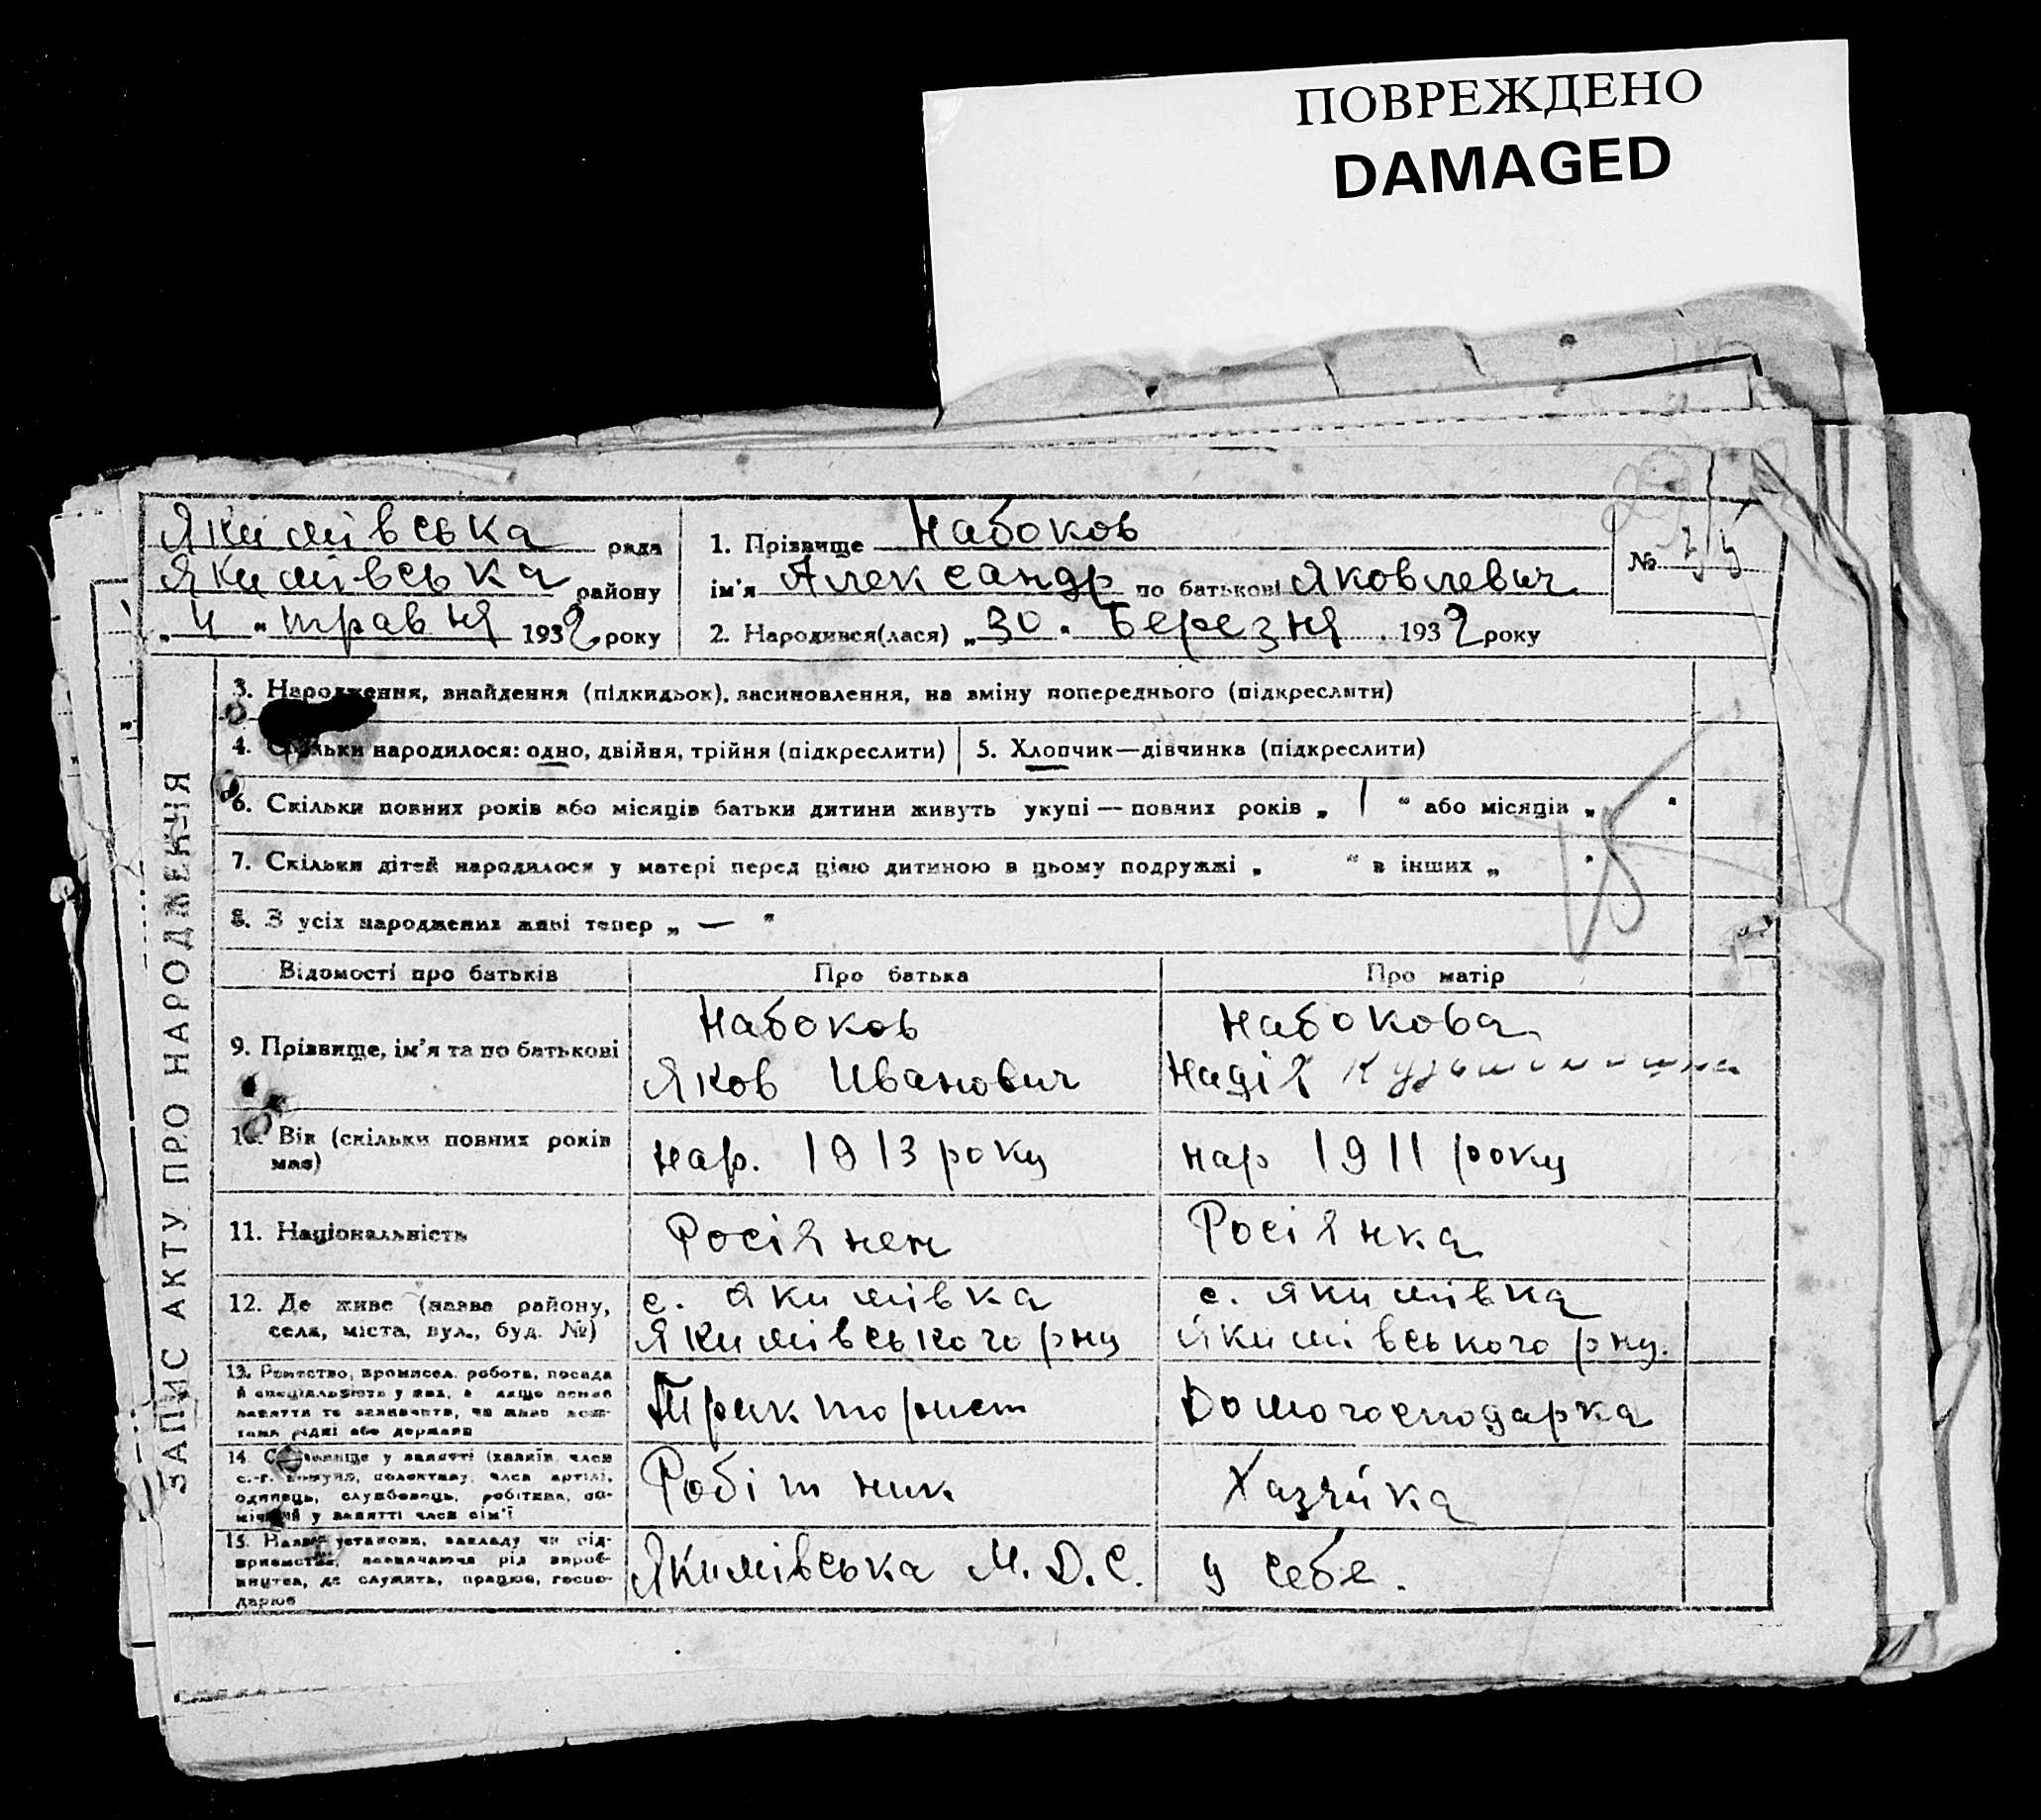 ПОВРЕЖДЕНО
DAMAGED
Якимівська рада
Якимівська району
„ 4 " травня 1932 року
1. Прізвище Набоков
ім'я Александр по батькові Яковлевич
2. Народився(лася) „ 30 " Березня 1932 року
№
ЗАПИС АКТУ ПРО НАРОДЖЕННЯ
3. Народження, знайдення (підкидьок), засиновлення, на зміну попереднього (підкреслити)
4. Скільки народилося: одно, двійня, трійня (підкреслити)
5. Хлопчик—дівчинка (підкреслити)
6. Скільки повних років або місяців батьки дитини живуть укупі — повних років „ 1 " або місяців „ "
7. Скільки дітей народилося у матері перед цією дитиною в цьому подружжі „ " в інших „ "
8. З усіх народжених живі тепер „ — "
15
Відомості про батьків
Про батька
Про матір
9. Прізвище, ім'я та по батькові
Набоков
Яков Иванович
Набокова
Надія
10. Вік (скільки повних років має)
нар. 1913 року
нар 1911 року
11. Національність
Росіянен
Росіянка
12. Де живе (назва району,
села, міста, вул., буд. №)
с. Якимівка
Якимівського рну
с. Якимівка
Якимівського рну.
13. Ремество, промисел, робота, посада
й спеціяльність у них, а якщо немає
заняття то зазначити, чи живе кош-
тами рідні або держави
Тракторист
Домогосподарка
14. Становище у занятті (хазяїн, член
с.-г. комуни, колективу, член артілі,
одинець, службовець, робітник, по-
мічний у занятті член сім'ї
Робітник
Хазяйка
15. Назва установи, закладу чи під-
приємства, зазначаючи рід вироб-
ництва, де служить, працює, госпо-
дарює
Якимівська М.Д.С.
у себе.